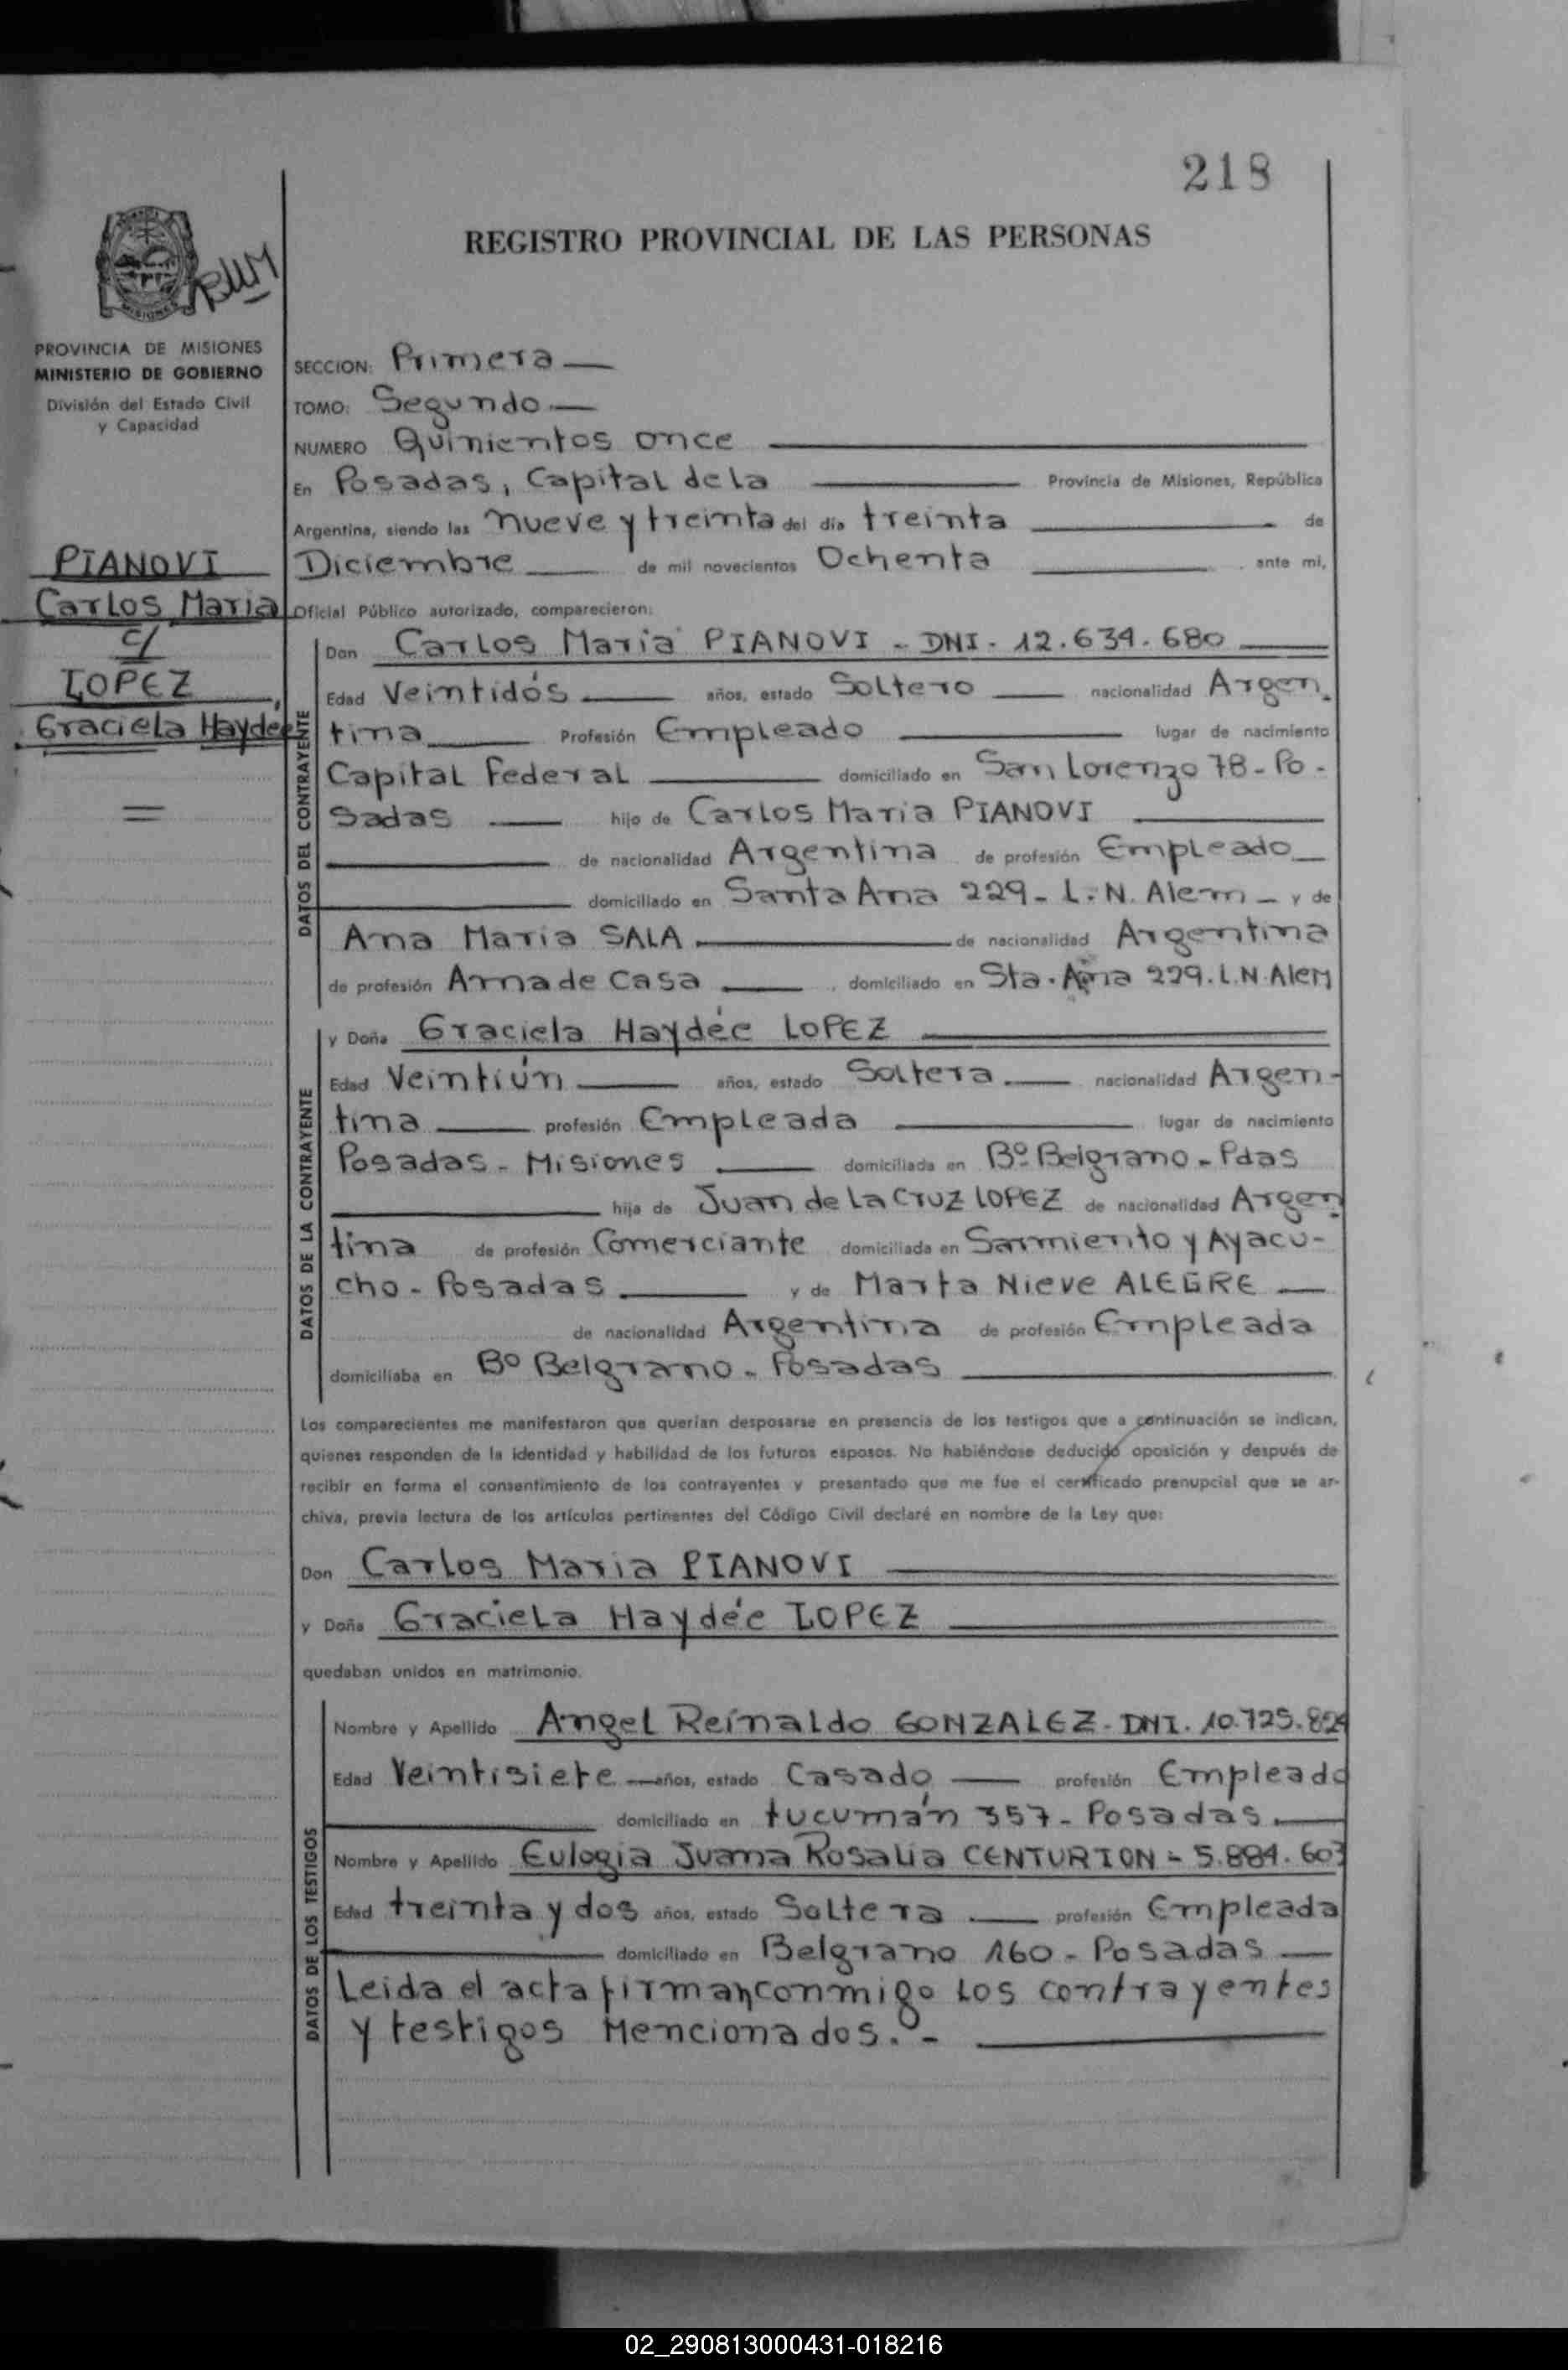 218
REGISTRO PROVINCIAL DE LAS PERSONAS
MISIONES
PROVINCIA DE MISIONES
MINISTERIO DE GOBIERNO
División del Estado Civil
y Capacidad
PIANOVI
Carlos Maria
c/
LOPEZ
Graciela Haydée
SECCION: Primera
TOMO: Segundo
NUMERO Quinientos once
En Posadas, Capital de la Provincia de Misiones, República
Argentina, siendo las nueve y treinta del día treinta de
Diciembre de mil novecientos Ochenta ante mi,
Oficial Público autorizado, comparecieron:
DATOS DEL CONTRAYENTE
Don Carlos Maria PIANOVI - DNI - 12.634.680
Edad Veintidós años, estado Soltero nacionalidad Argen-
tina Profesión Empleado lugar de nacimiento
Capital Federal domiciliado en San Lorenzo 78 - Po-
sadas hijo de Carlos Maria PIANOVI
de nacionalidad Argentina de profesión Empleado
domiciliado en Santa Ana 229 - L. N. Alem - y de
Ana Maria SALA de nacionalidad Argentina
de profesión Ama de Casa domiciliado en Sta. Ana 229. L.N. Alem
DATOS DE LA CONTRAYENTE
y Doña Graciela Haydée LOPEZ
Edad Veintiún años, estado Soltera nacionalidad Argen-
tina profesión Empleada lugar de nacimiento
Posadas - Misiones domiciliada en Bº Belgrano - Pdas
hija de Juan de La Cruz LOPEZ de nacionalidad Argen
tina de profesión Comerciante domiciliada en Sarmiento y Ayacu-
cho - Posadas y de Marta Nieve ALEGRE
de nacionalidad Argentina de profesión Empleada
domiciliaba en Bº Belgrano - Posadas
Los comparecientes me manifestaron que querían desposarse en presencia de los testigos que a continuación se indican,
quienes responden de la identidad y habilidad de los futuros esposos. No habiéndose deducido oposición y después de
recibir en forma el consentimiento de los contrayentes y presentado que me fue el certificado prenupcial que se ar-
chiva, previa lectura de los artículos pertinentes del Código Civil declaré en nombre de la Ley que:
Don Carlos Maria PIANOVI
y Doña Graciela Haydée LOPEZ
quedaban unidos en matrimonio.
DATOS DE LOS TESTIGOS
Nombre y Apellido Angel Reinaldo GONZALEZ - DNI. 10.725.824
Edad Veintisiete años, estado Casado profesión Empleado
domiciliado en tucumán 357 - Posadas.
Nombre y Apellido Eulogia Juana Rosalia CENTURION - 5.884.603
Edad treinta y dos años, estado Soltera profesión Empleada
domiciliado en Belgrano 160 - Posadas
Leida el acta firman conmigo los contrayentes
y testigos Mencionados. -
02_290813000431-018216